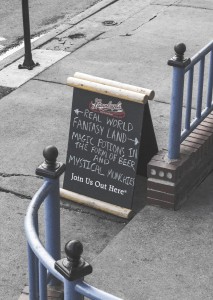 Leinenkugel's
← REAL WORLD
FANTASY LAND →
MAGIC POTIONS IN
THE FORM OF BEER
AND
MYSTICAL MUNCHIES
Join Us Out Here®